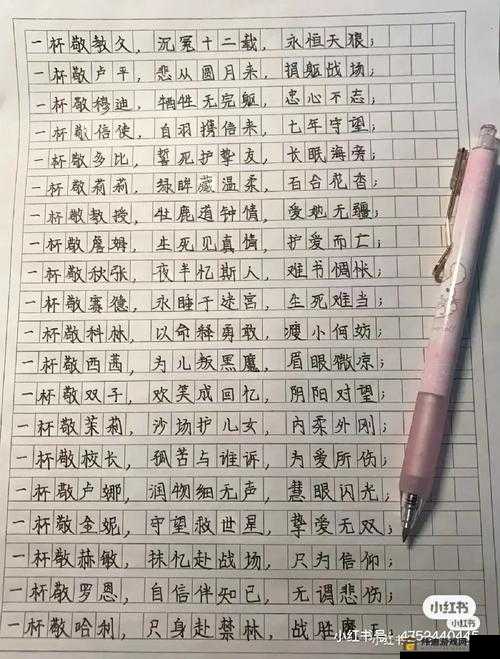 一杯敬教父，沉冤十二载，永恒天狼；
一杯敬卢平，悲从圆月来，捐躯战场；
一杯敬穆迪，牺牲无完躯，忠心不忘；
一杯敬信使，白羽携信来，七年守望；
一杯敬多比，誓死护挚友，长眠海旁；
一杯敬莉莉，绿眸藏温柔，百合花杳；
一杯敬教授，牡鹿道钟情，爱她无疆；
一杯敬詹姆，生死见真情，护爱而亡；
一杯敬秋张，夜半忆斯人，难书惆怅；
一杯敬赛德，永睡于迷宫，生死难当；
一杯敬科林，以命释勇敢，瘦小何妨；
一杯敬西茜，为儿叛黑魔，眉眼微凉；
一杯敬双子，欢笑成回忆，阴阳对望；
一杯敬茉莉，沙场护儿女，内柔外刚；
一杯敬校长，孤苦与谁诉，为爱所伤；
一杯敬卢娜，润物细无声，慧眼闪光；
一杯敬金妮，守望救世星，挚爱无双；
一杯敬赫敏，抹忆赴战场，只为信仰；
一杯敬罗恩，自信伴知己，无谓悲伤；
一杯敬哈利，只身赴禁林，战胜魔王
小红书
小红书
小红书号：4752440445